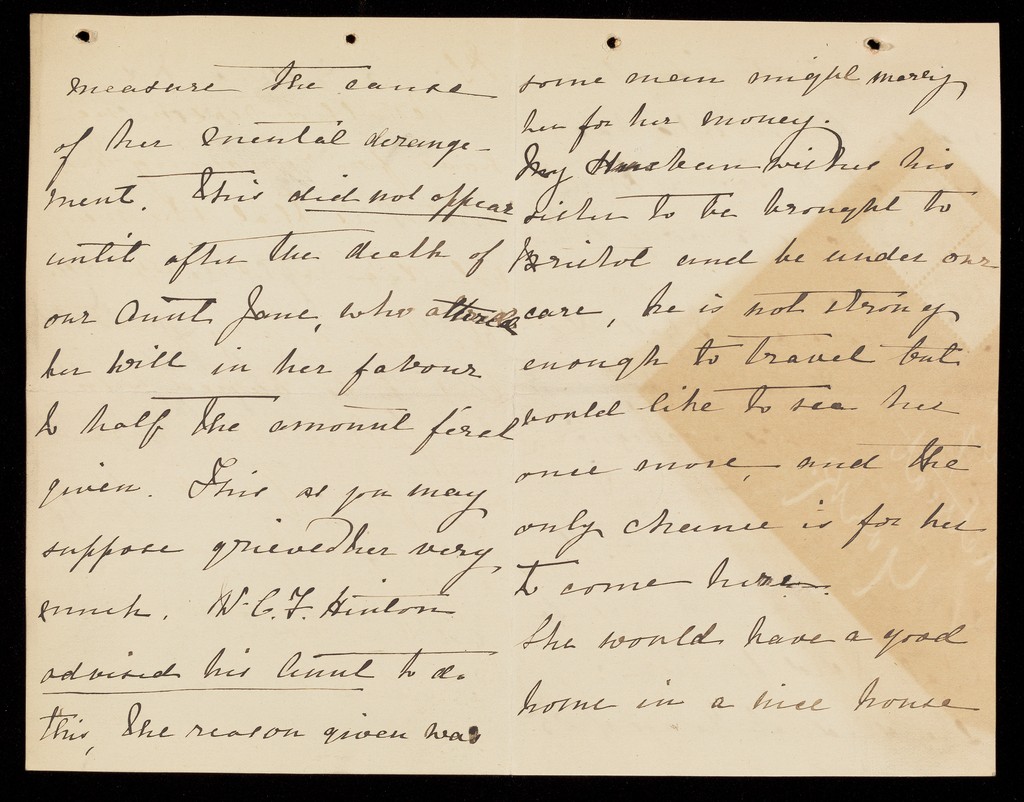 measure the cause
of her mental derange-
ment. This did not appear
until after the death of
our Aunt Jane, who altered
her Will in her favour
to half the amount first
given. This as you may
suppose grieved her very
much. W. C. F. Hinton
advised his Aunt to do
this, the reason given was
some man might marry
her for her money.
My Husban wishes his
sister to be brought to
Bristol and be under our
care, he is not strong
enough to travel but
would like to see her
once more, and the
only chance is for her
to come here.
She would have a good
home in a nice house